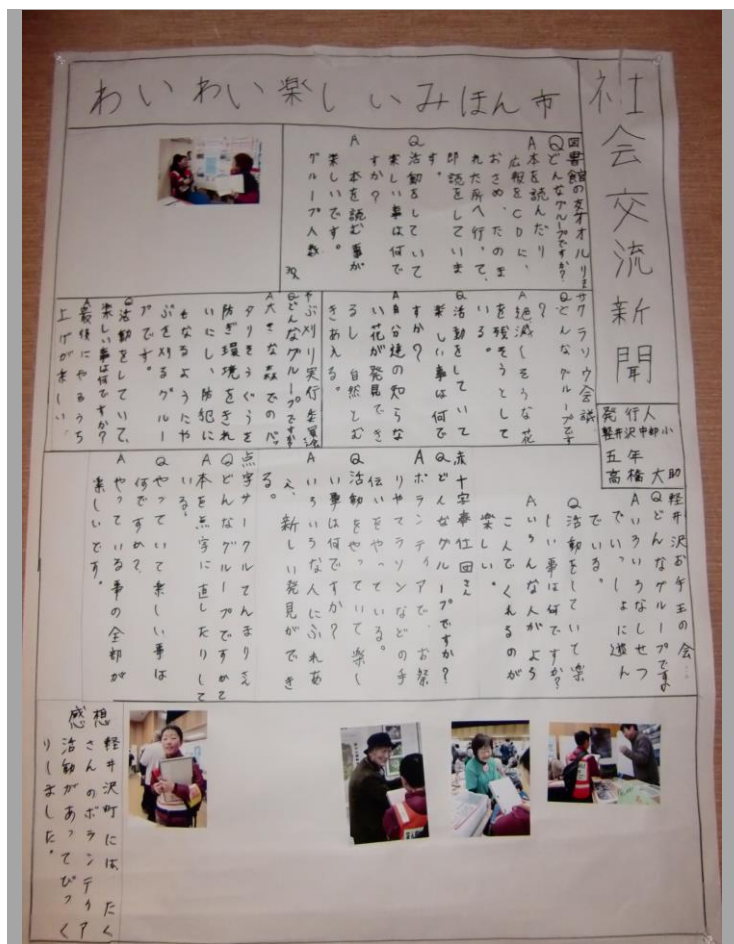 社会交流新聞
発行人
軽井沢中部小
五年
高橋大助
わいわい楽しいみほん市
図書館の友オオルリ
Qどんなグループですか?
A本を読んだり
広報をCDに、
おさめ、たのま
れた所へ行って、
即読をしていま
す。
Q活動をしていて
楽しい事は何で
すか?
A 本を読む事が
楽しいです。
グループ人数
サクラソウ会議
Qどんなグループです
?
A絶滅しそうな花
を残そうとして
いる。
Q活動をしていて
楽しい事は何で
すか?
A自分達の知らな
い花が発見でき
るし 自然とむ
きあえる。
やぶ刈り実行委員
Qどんなグループですか
A大きな森でのバッ
タリそうぐうを
防ぎ環境をきれ
いにし、防犯に
もなるようにや
ぶを刈るグルー
プです。
Q活動をしていて、
楽しい事は何ですか?
A最後にやるうち
上げが楽しい
軽井沢お手玉の会
Qどんなグループですか
Aいろいろなしせつ
でいっしょに遊ん
でいる。
Q活動をしていて楽
しい事は何ですか?
Aいろんな人がよろ
こんでくれるのが
楽しい。
赤十字奉仕団さん
Qどんなグループですか?
Aボランティアで、お祭
りやマラソンなどの手
伝いをやっている。
Q活動をやっていて楽し
い事は何ですか?
Aいろいろな人にふれあ
え、新しい発見ができ
る。
点字サークルてんまりさん
Qどんなグループですか
A本を点字に直したりして
いる。
Qやっていて楽しい事は
何ですか?
Aやっている事の全部が
楽しいです。
感想
軽井沢町には、たく
さんのボランティア
活動があってびっく
りしました。